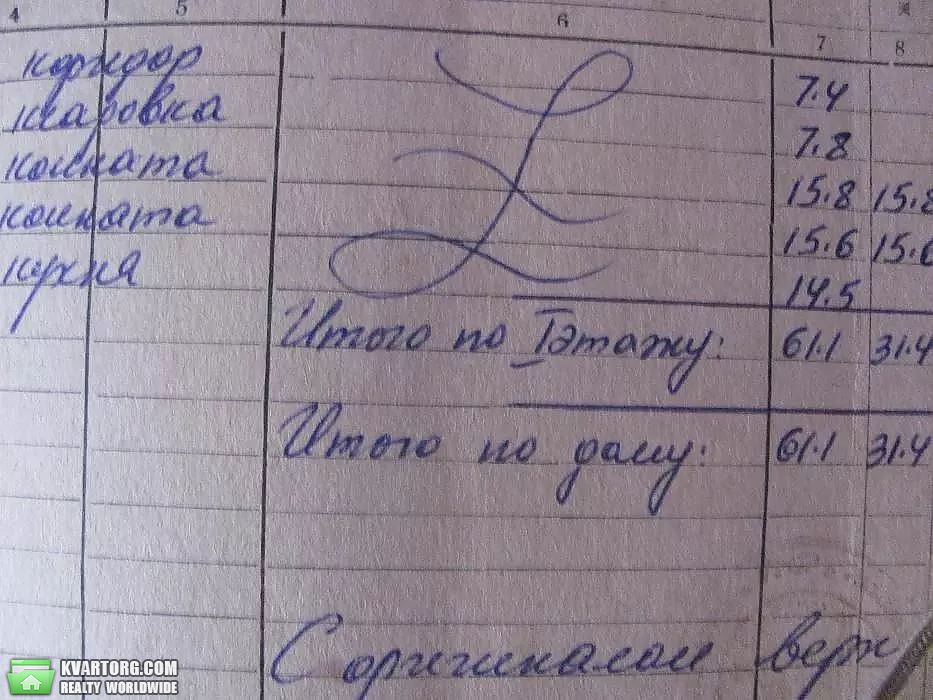 4 5 6 7 8
коридор 7.4
кладовка 7.8
комната 15.8 15.8
комната 15.6 15.6
кухня 14.5
Итого по I этажу: 61.1 31.4
Итого по дому: 61.1 31.4
С оригиналом верн
KVARTORG.COM
REALTY WORLDWIDE